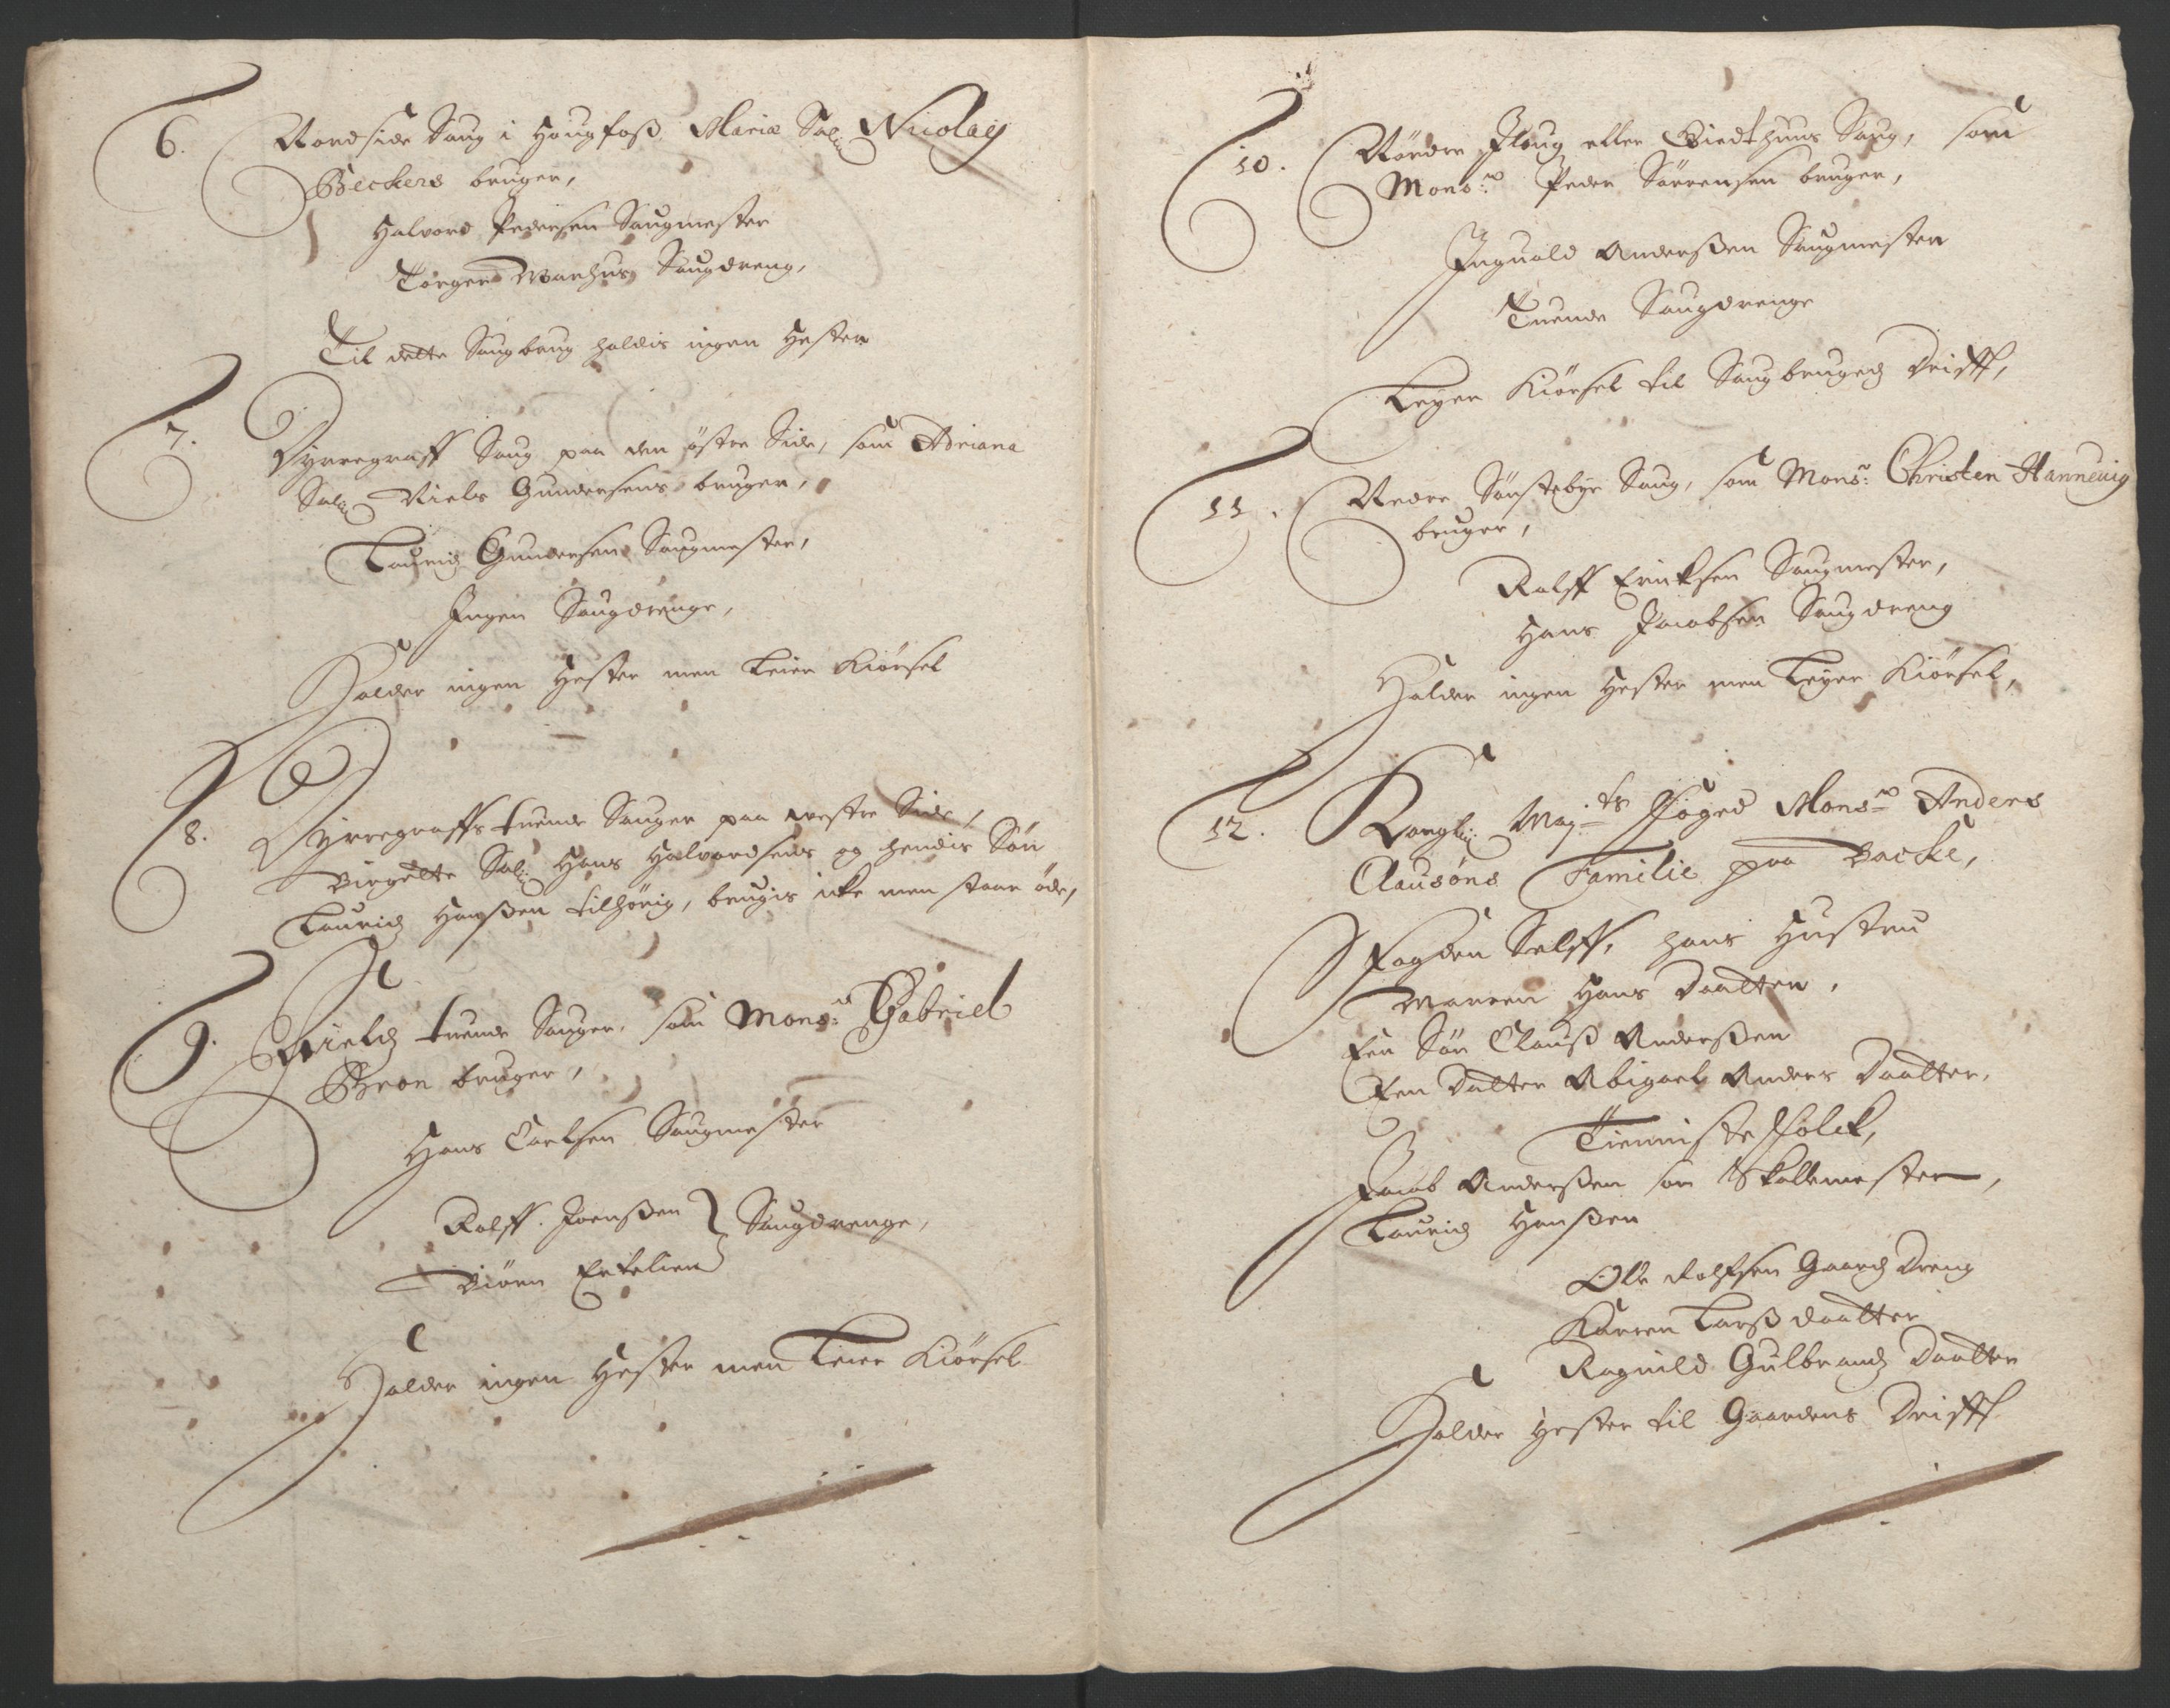 6. Nordside Saug i Hougfoß Maria Sal: Nicolay
Beckers bruger,
Halvord Pedersen Saugmester
Torger Warhus Saugdreng,
Til dette Saugbrug holdis ingen Hester
7. Dyrregraff Saug paa den østre Side, som Adriana
Sal: Niels Gundersens bruger,
Lauridz Gundersen Saugmester,
Ingen Saugdrenge,
Holder ingen Hester men Leier Kiørsel
8. Dyrregraffs tuende Sauger paa westre Side,
Birgitte Sal: Hans Halvordsens og hendis Søn
Lauridz Hanßen tilhørig, brugis icke men staar øde,
9. tuende Sauger, som Monsr: Gabriel
Bron bruger,
Hans Carlsen Saugmester
Rolff Joenßen } Saugdrenge,
Biørn
Holder ingen Hester men Leier Kiørsel
10. Nørdre Floug eller Saug, som
Monsr: Peder Sørrensen bruger,
Inguald Anderßen Saugmester
Tuende Saugdrenge
Leyer Kiørsel til Saugbrugedz Drifft,
11. Nedre Sønstebye Saug, som Monsr: Christen Hanneuig
bruger,
Rolff Ericksen Saugmester,
Hans Jacobsen Saugdreng
Holder ingen Hester men Leyer Kiørsel,
12. Kongl: Mayts Foged Monsr Anders
Clausøns Familie paa Backe,
Fogden Selff, hans Hustru
Marren Hans Daatter,
Een Søn Clauß Anderßen
Een Datter Abigael Anders Daatter,
Tienniste Folck,
Jacob Anderßen som Skollemester,
Lauridz Hanßen
Ole Rolfsen Gaardz Dreng
Karren Larß daatter
Ragnild Gulbrandz Daatter
Holder Hester til Gaardens Drifft